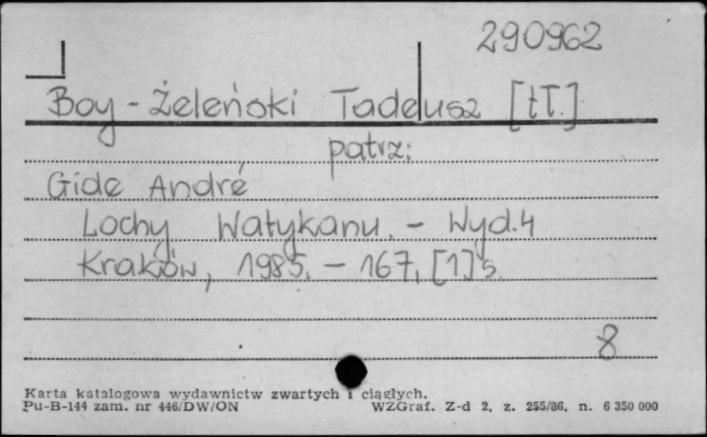 290962
Boy-Żeleński Tadeusz [tł.]
patrz:
Gide André
Lochy Watykanu. - Wyd.4
Kraków, 1985. - 167, [1] s.
8
Karta katalogowa wydawnictw zwartych i ciągłych.
Pu-B-144 zam. nr 446/DW/ON WZGraf. Z-d 2, z. 255/86, n. 6 350 000